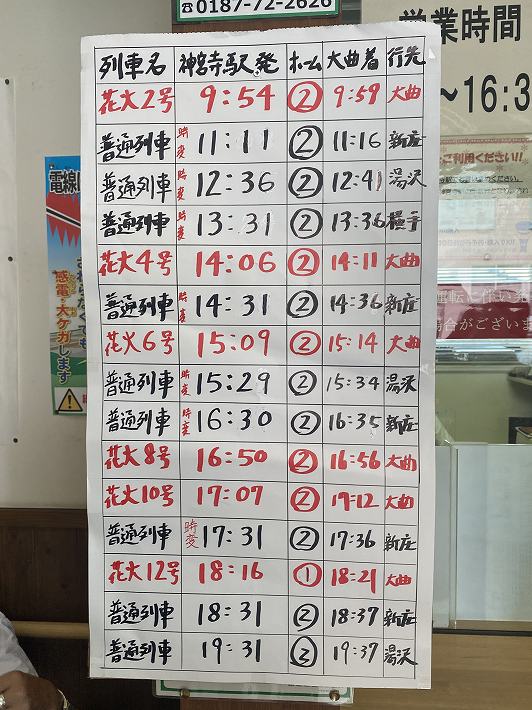 ☎0187-72-2626
営業時間
～16:3
ご利用ください!!
運転に伴い
場合がござい
電線
感電・大ケガします
列車名 神宮寺駅発 ホーム 大曲着 行先
花火2号 9:54 ② 9:59 大曲
普通列車 時変 11:11 ② 11:16 新庄
普通列車 時変 12:36 ② 12:41 湯沢
普通列車 時変 13:31 ② 13:36 横手
花火4号 14:06 ② 14:11 大曲
普通列車 時変 14:31 ② 14:36 新庄
花火6号 15:09 ② 15:14 大曲
普通列車 時変 15:29 ② 15:34 湯沢
普通列車 時変 16:30 ② 16:35 新庄
花火8号 16:50 ② 16:56 大曲
花火10号 17:07 ② 17:12 大曲
普通列車 時変 17:31 ② 17:36 新庄
花火12号 18:16 ① 18:21 大曲
普通列車 18:31 ② 18:37 新庄
普通列車 19:31 ② 19:37 湯沢